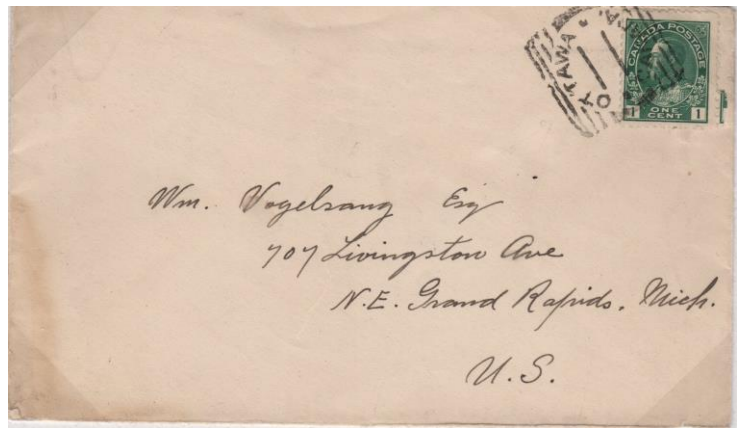 CANADA POSTAGE
1 ONE CENT 1
Wm. Vogelsang Esq
707 Livingston Ave
N.E. Grand Rapids. Mich.
U.S.